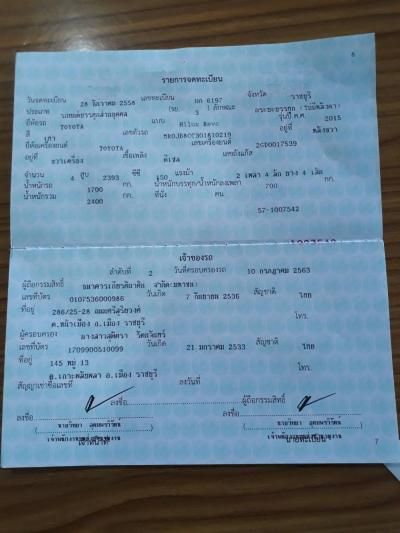 6
รายการจดทะเบียน
วันจดทะเบียน 28 ธันวาคม 2558 เลขทะเบียน 6197 จังหวัด ราชบุรี
ประเภท รถยนต์บรรทุกส่วนบุคคล (รย. 3 ) ลักษณะ กระบะบรรทุก
ยี่ห้อรถ TOYOTA แบบ Hilux Revo รุ่นปี ค.ศ. 2015
สี เทา เลขตัวรถ MR0JB8CC301810219 อยู่ที่
ยี่ห้อเครื่องยนต์ TOYOTA เลขเครื่องยนต์ 2GD0017539
อยู่ที่ ขวาเครื่อง เชื้อเพลิง ดีเซล เลขถังแก๊ส
จำนวน 4 สูบ 2393 ซีซี 150 แรงม้า 2 เพลา 4 ล้อ ยาง 4 เส้น
น้ำหนักรถ 1700 กก. น้ำหนักบรรทุก/น้ำหนักลงเพลา 700 กก.
น้ำหนักรวม 2400 กก. ที่นั่ง คน
57-1007542
เจ้าของรถ
ลำดับที่ 2 วันที่ครอบครองรถ 10 กรกฎาคม 2563
ผู้ถือกรรมสิทธิ์ ธนาคารเกียรตินาคิน จำกัด(มหาชน)
เลขที่บัตร 0107536000986 วันเกิด 7 กันยายน 2536 สัญชาติ ไทย
ที่อยู่ 286/25-28 ถนนศรีสุริยวงศ์ โทร.
ต.หน้าเมือง อ.เมือง ราชบุรี
ผู้ครอบครอง นางสาวสุทัตรา
เลขที่บัตร 1709900510099 วันเกิด 21 มกราคม 2533 สัญชาติ ไทย
ที่อยู่ 145 หมู่ 13 โทร.
ต.เกาะพลับพลา อ.เมือง ราชบุรี
สัญญาเช่าซื้อเลขที่ ลงวันที่
ลงชื่อ ผู้ถือกรรมสิทธิ์
ลงชื่อ ลงชื่อ
เจ้าหน้าที่ นายทะเบียน
7